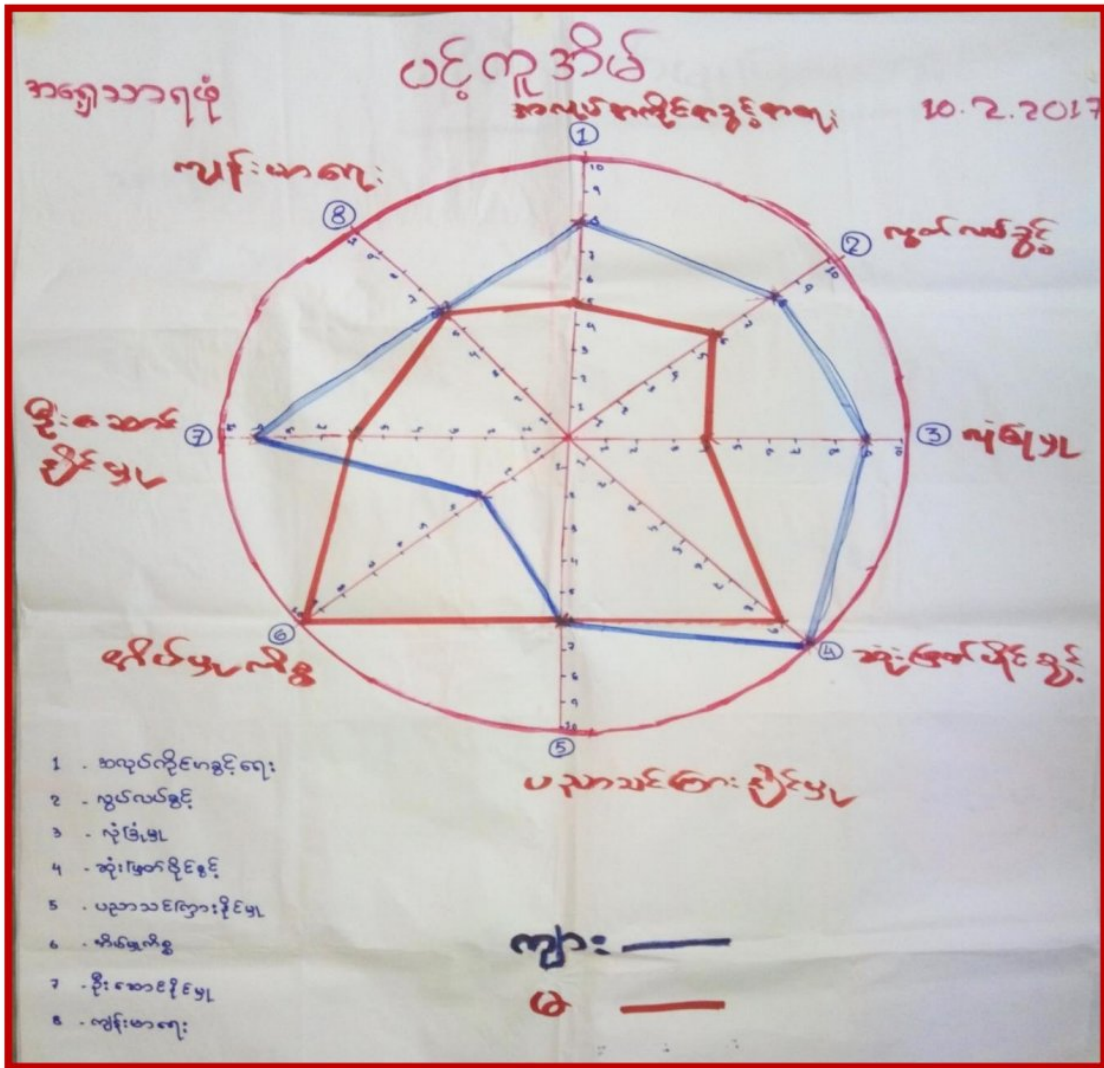 ပင့်ကူအိမ်
အရှေ့သာရဖုံ
10.2.2017
အလုပ်အကိုင်အခွင့်အရေး
1
လွတ်လပ်ခွင့်
2
လုံခြုံမှု
3
ဆုံးဖြတ်ပိုင်ခွင့်
4
ပညာသင်ကြားနိုင်မှု
5
အိမ်မှုကိစ္စ
6
ဦးဆောင်နိုင်မှု
7
ကျန်းမာရေး
8
1 - အလုပ်ကိုင်အခွင့်ရေး
2 - လွပ်လပ်ခွင့်
3 - လုံခြုံမှု
4 - ဆုံးဖြတ်ပိုင်ခွင့်
5 - ပညာသင်ကြားနိုင်မှု
6 - အိမ်မှုကိစ္စ
7 - ဦးဆောင်နိုင်မှု
8 - ကျန်းမာရေး
ကျား
မ